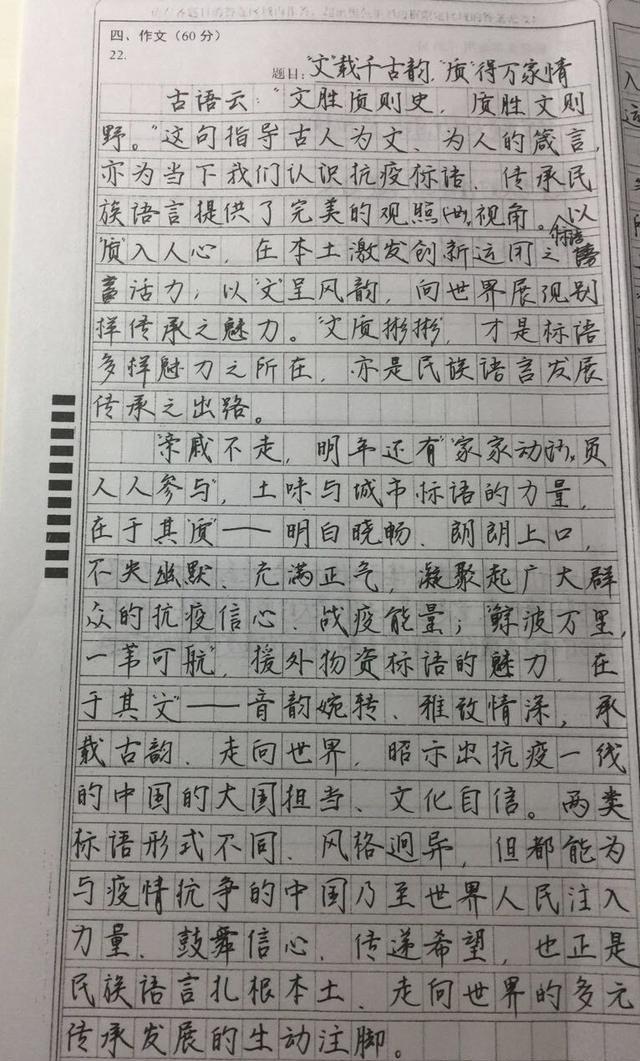 四、作文（60分）
22.
题目：“文”载千古韵 “质”得万家情
古语云：“文胜质则史，质胜文则
野。”这句指导古人为文、为人的箴言，
亦为当下我们认识抗疫标语、传承民
族语言提供了完美的观照视角。以
“质”入人心，在本土激发创新运用之标语
活力；以“文”呈风韵，向世界展现别
样传承之魅力。“文质彬彬”，才是标语
多样魅力之所在，亦是民族语言发展
传承之出路。
“亲戚不走，明年还有”“家家动员，
人人参与”，土味与城市标语的力量，
在于其“质”——明白晓畅、朗朗上口，
不失幽默、充满正气，凝聚起广大群
众的抗疫信心、战疫能量；“鲸波万里，
一苇可航”，援外物资标语的魅力，在
于其“文”——音韵婉转、雅致情深，承
载古韵、走向世界，昭示出抗疫一线
的中国的大国担当、文化自信。两类
标语形式不同、风格迥异，但都能为
与疫情抗争的中国乃至世界人民注入
力量、鼓舞信心、传递希望，也正是
民族语言扎根本土、走向世界的多元
传承发展的生动注脚。